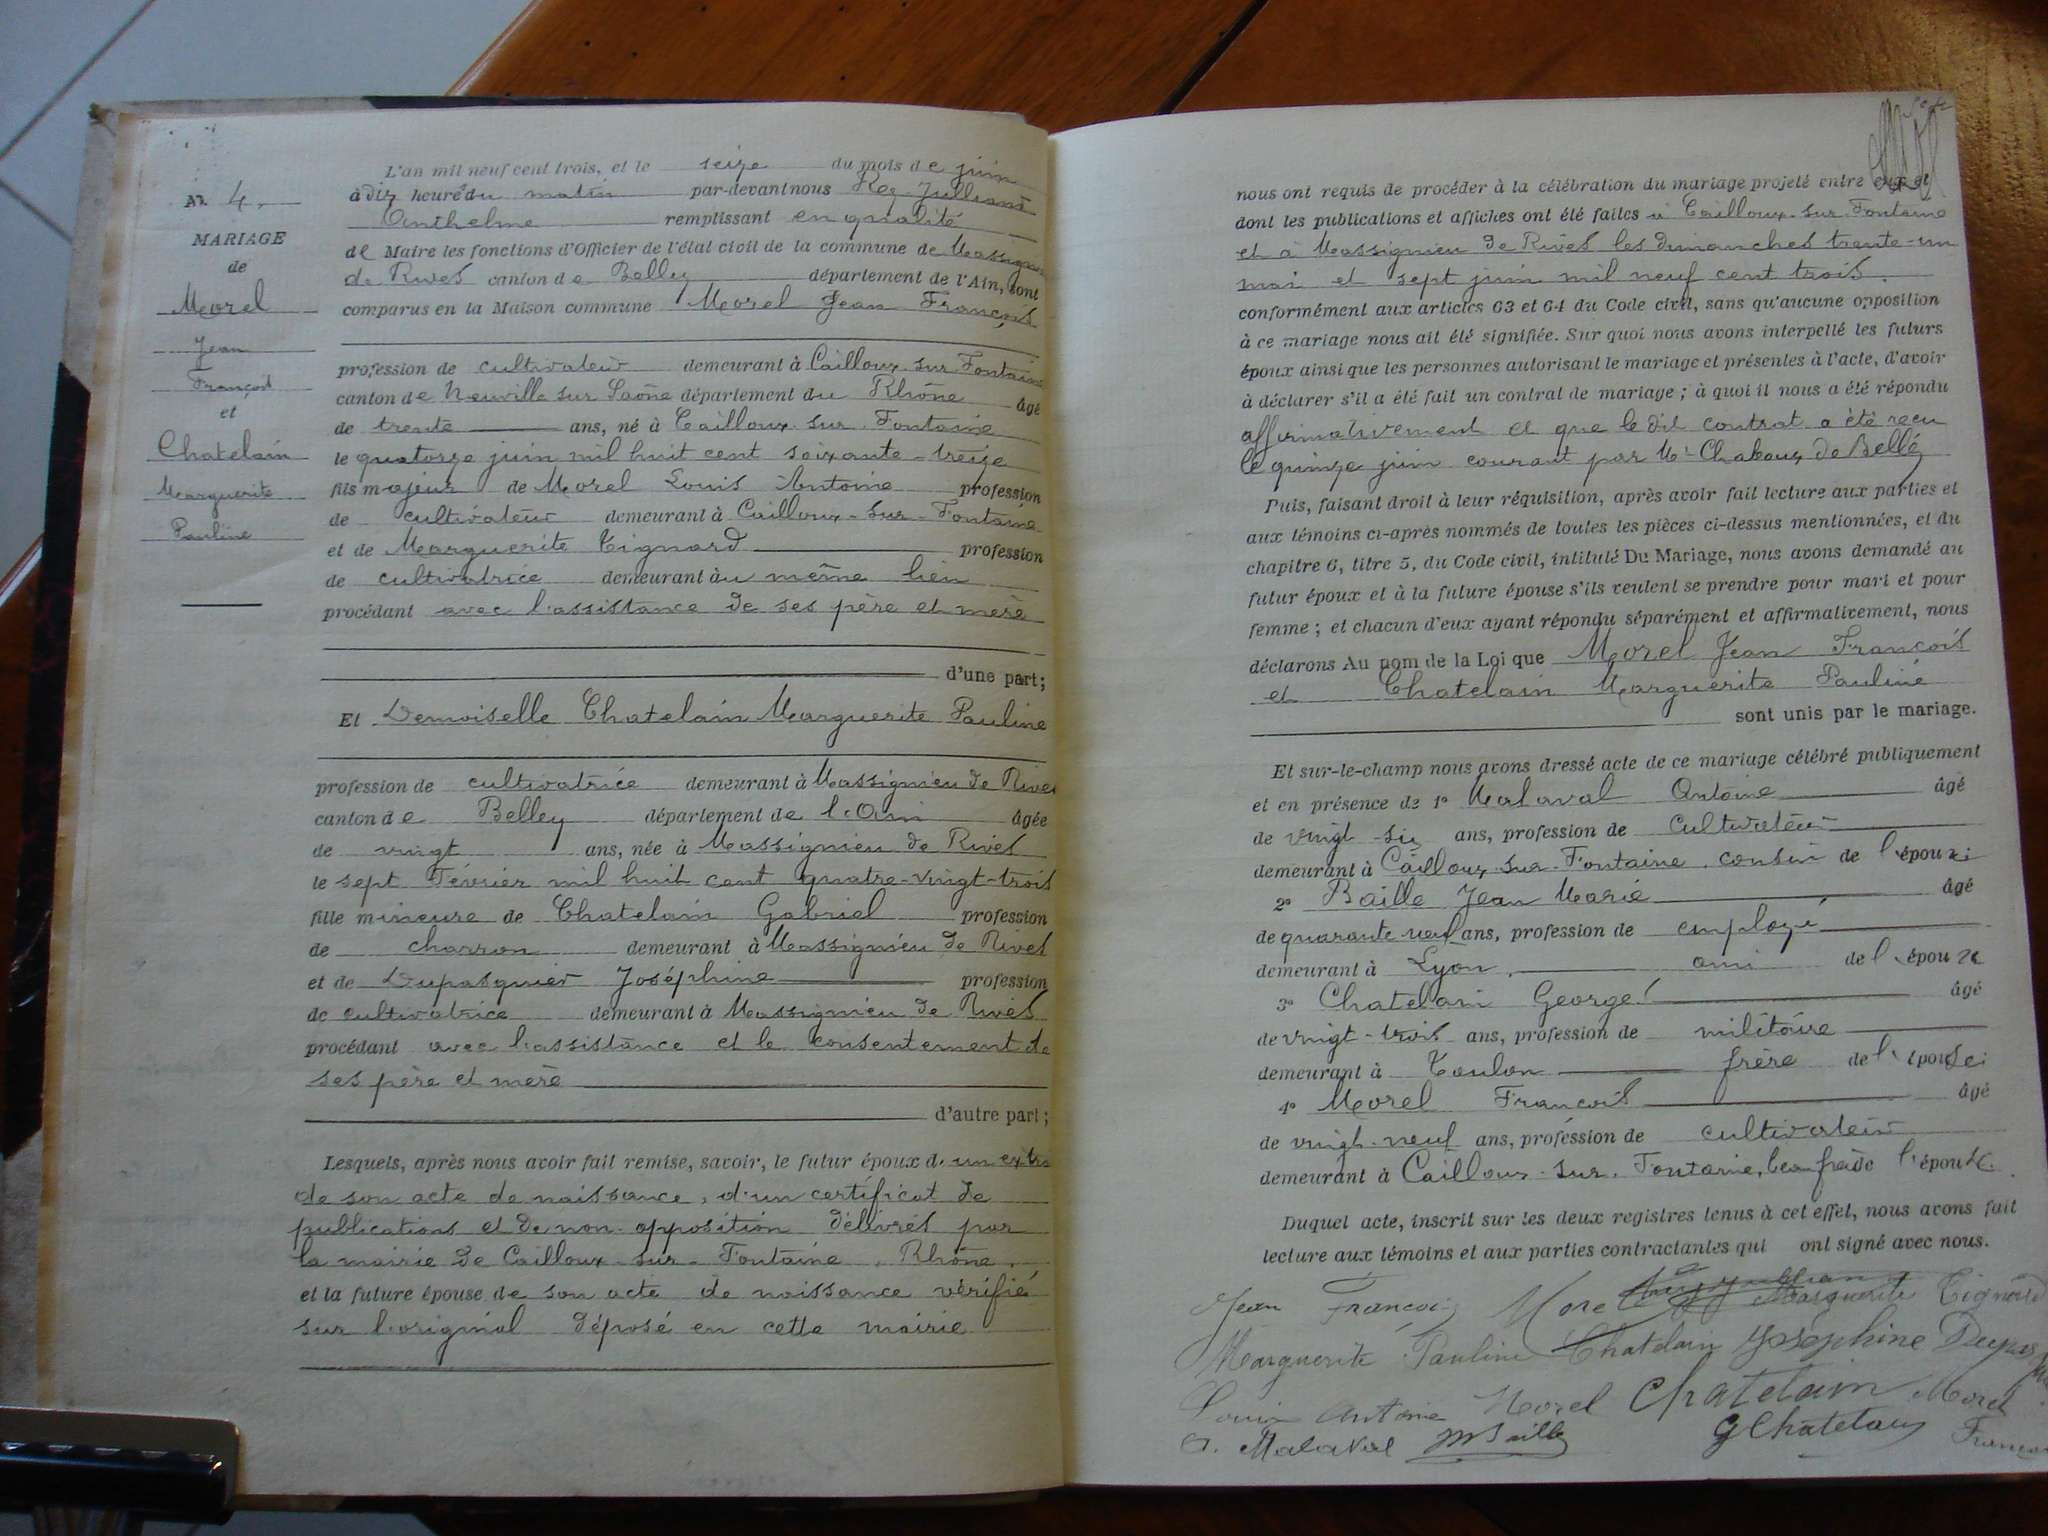 N. 4.
MARIAGE
de
Morel
Jean
François
et
Chatelain
Marguerite
Pauline
L'an mil neuf cent trois, et le seize du mois de juin
à dix heure du matin par-devant nous Rey-Jullian
Anthelme remplissant en qualité
de Maire les fonctions d'Officier de l'état civil de la commune de Massignieu
de Rives canton de Belley département de l'Ain, sont
comparus en la Maison commune Morel Jean François
profession de cultivateur demeurant à Cailloux-sur-Fontaine
canton de Neuville sur Saône département du Rhône âgé
de trente ans, né à Cailloux-sur-Fontaine
le quatorze juin mil huit cent soixante-treize
fils majeur de Morel Louis Antoine profession
de cultivateur demeurant à Cailloux-sur-Fontaine
et de Marguerite Tignard profession
de cultivatrice demeurant au même lieu
procédant avec l'assistance de ses père et mère
d'une part;
Et Demoiselle Chatelain Marguerite Pauline
profession de cultivatrice demeurant à Massignieu de Rives
canton de Belley département de l'Ain âgée
de vingt ans, née à Massignieu de Rives
le sept Février mil huit cent quatre-vingt-trois
fille mineure de Chatelain Gabriel profession
de charron demeurant à Massignieu de Rives
et de Dupasquier Joséphine profession
de cultivatrice demeurant à Massignieu de Rives
procédant avec l'assistance et le consentement de
ses père et mère
d'autre part;
Lesquels, après nous avoir fait remise, savoir, le futur époux d'un extra
de son acte de naissance, d'un certificat de
publications et de non-opposition délivrés par
la mairie de Cailloux-sur-Fontaine, Rhône,
et la future épouse de son acte de naissance vérifié
sur l'original déposé en cette mairie
nous ont requis de procéder à la célébration du mariage projeté entre eux et
dont les publications et affiches ont été faites à Cailloux-sur-Fontaine
et à Massignieu de Rives les dimanches trente-un
mai et sept juin mil neuf cent trois.
conformément aux articles 63 et 64 du Code civil, sans qu'aucune opposition
à ce mariage nous ait été signifiée. Sur quoi nous avons interpellé les futurs
époux ainsi que les personnes autorisant le mariage et présentes à l'acte, d'avoir
à déclarer s'il a été fait un contrat de mariage; à quoi il nous a été répondu
affirmativement et que le dit contrat a été reçu
le quinze juin courant par Me Chaboux de Belley
Puis, faisant droit à leur réquisition, après avoir fait lecture aux parties et
aux témoins ci-après nommés de toutes les pièces ci-dessus mentionnées, et du
chapitre 6, titre 5, du Code civil, intitulé Du Mariage, nous avons demandé au
futur époux et à la future épouse s'ils veulent se prendre pour mari et pour
femme; et chacun d'eux ayant répondu séparément et affirmativement, nous
déclarons Au nom de la Loi que Morel Jean François
et Chatelain Marguerite Pauline
sont unis par le mariage.
Et sur-le-champ nous avons dressé acte de ce mariage célébré publiquement
et en présence de 1° Malaval Antoine âgé
de vingt-six ans, profession de cultivateur
demeurant à Cailloux-sur-Fontaine, cousin de l'époux
2° Baille Jean Marie âgé
de quarante neuf ans, profession de employé
demeurant à Lyon, ami de l'époux
3° Chatelain Georges âgé
de vingt-trois ans, profession de militaire
demeurant à Toulon frère de l'épouse
4° Morel François âgé
de vingt-neuf ans, profession de cultivateur
demeurant à Cailloux-sur-Fontaine, beau frère de l'épouse
Duquel acte, inscrit sur les deux registres tenus à cet effet, nous avons fait
lecture aux témoins et aux parties contractantes qui ont signé avec nous.
Jean François Morel Marguerite Tignard
Marguerite Pauline Chatelain Joséphine Dupas
Louis Antoine Morel Chatelain Morel
A. Malaval JM Baille G Chatelain François